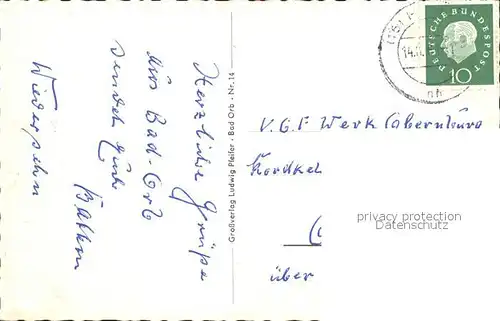 Herzliche Grüße
Aus Bad-Orb
senden Euch
Wiedersehn
Großverlag Ludwig Pfeifer · Bad Orb · Nr. 14
DEUTSCHE BUNDESPOST
10
14.
V.G.F Werk Obernburg
über
privacy protection
Datenschutz